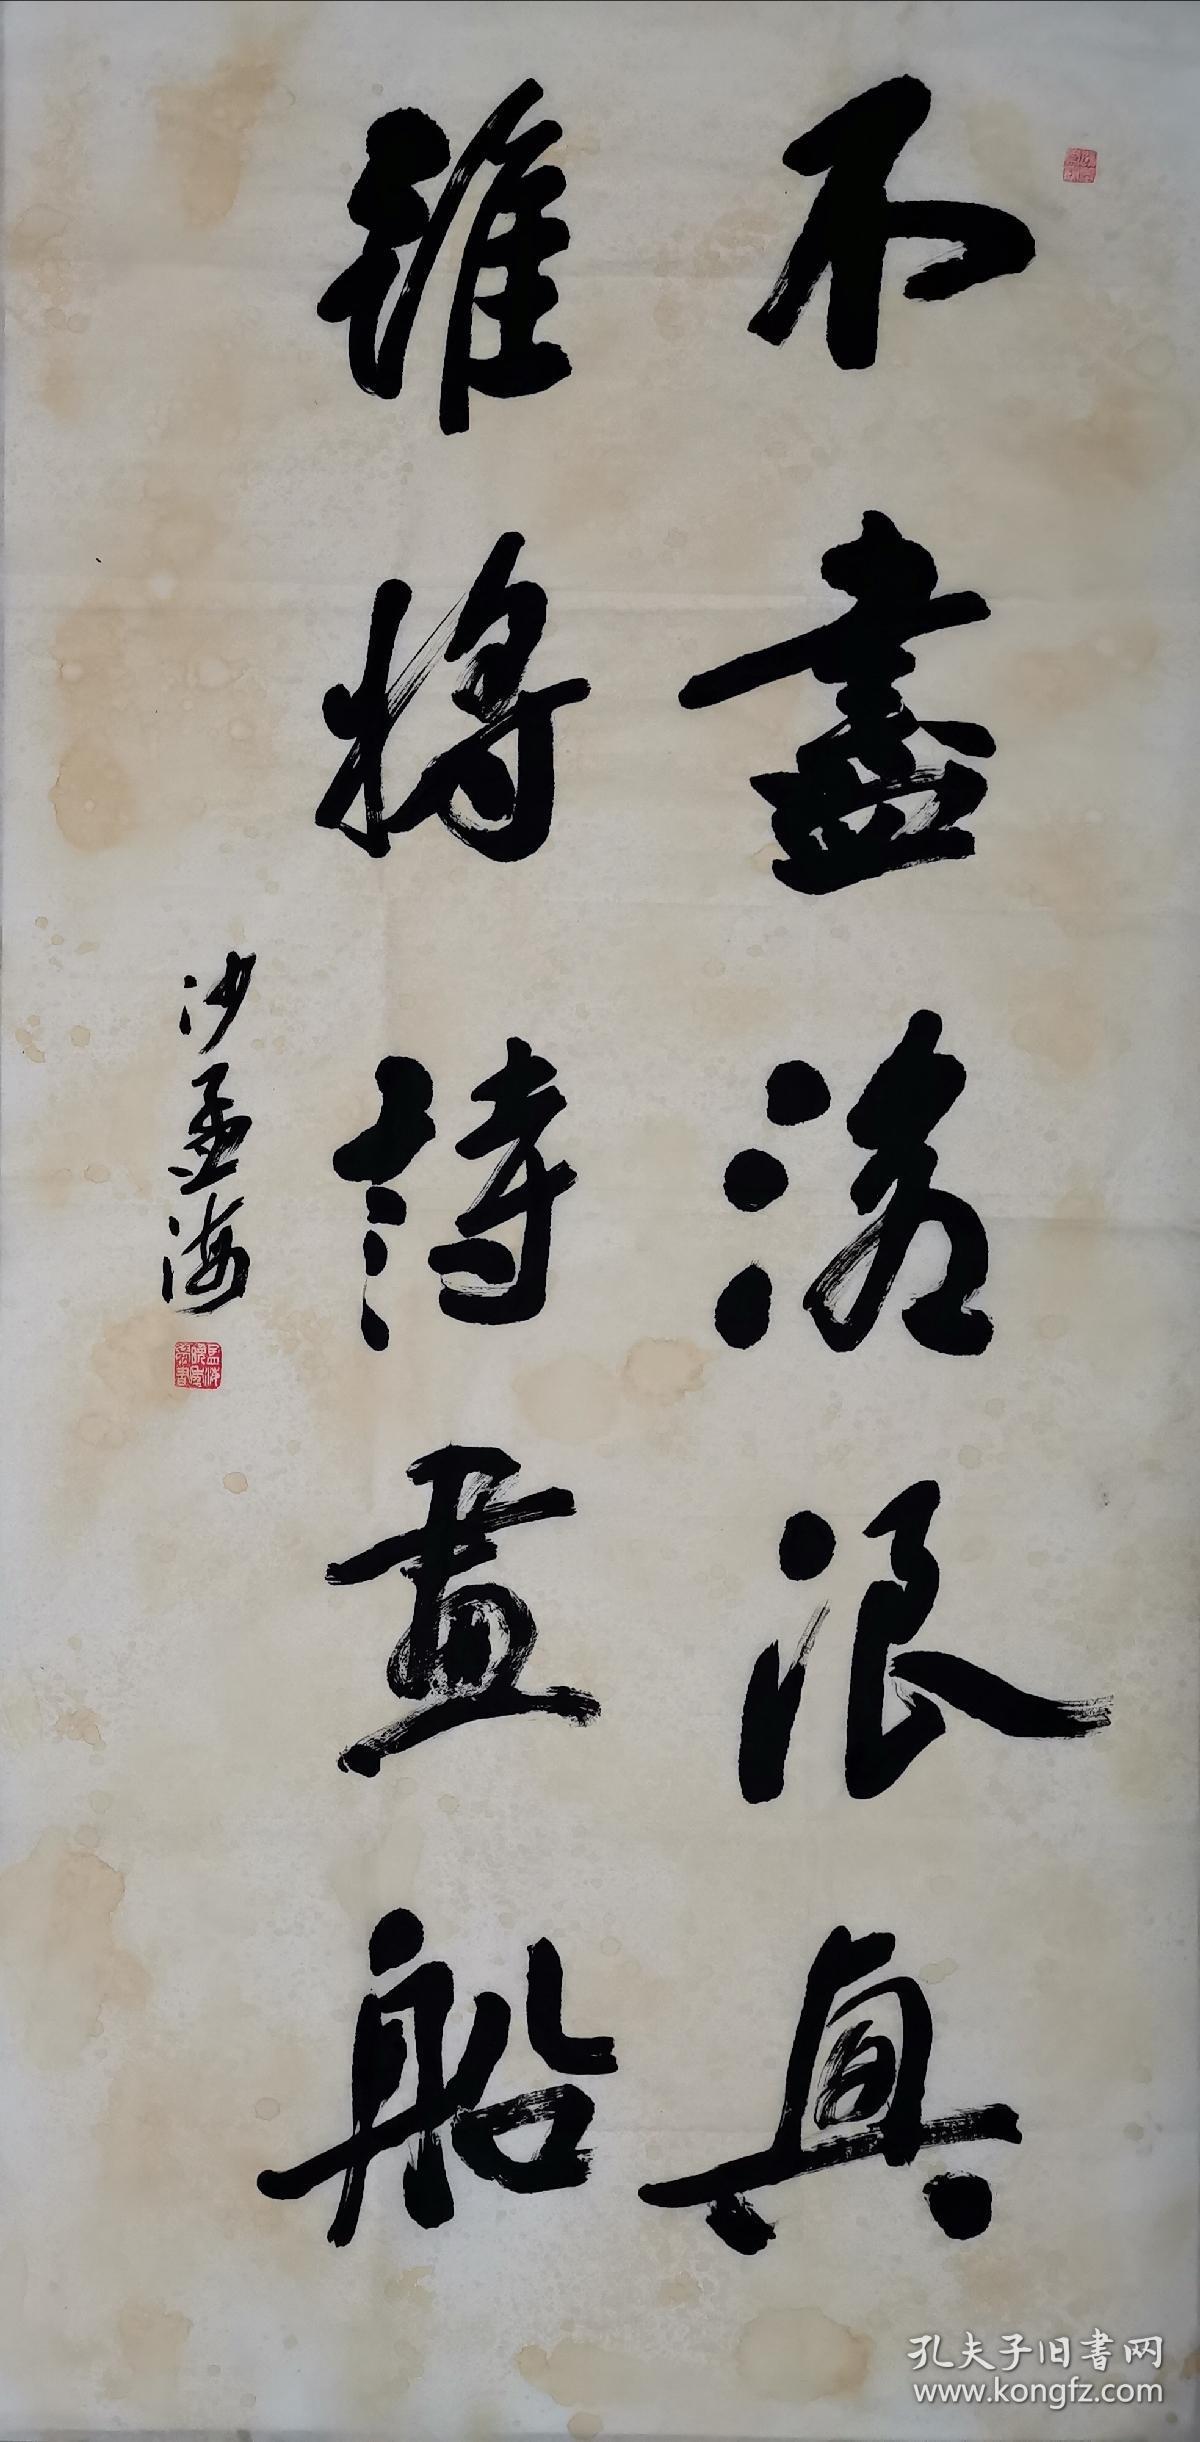 不盡滄浪興
誰將詩畫船
沙孟海
孔夫子旧书网
www.kongfz.com